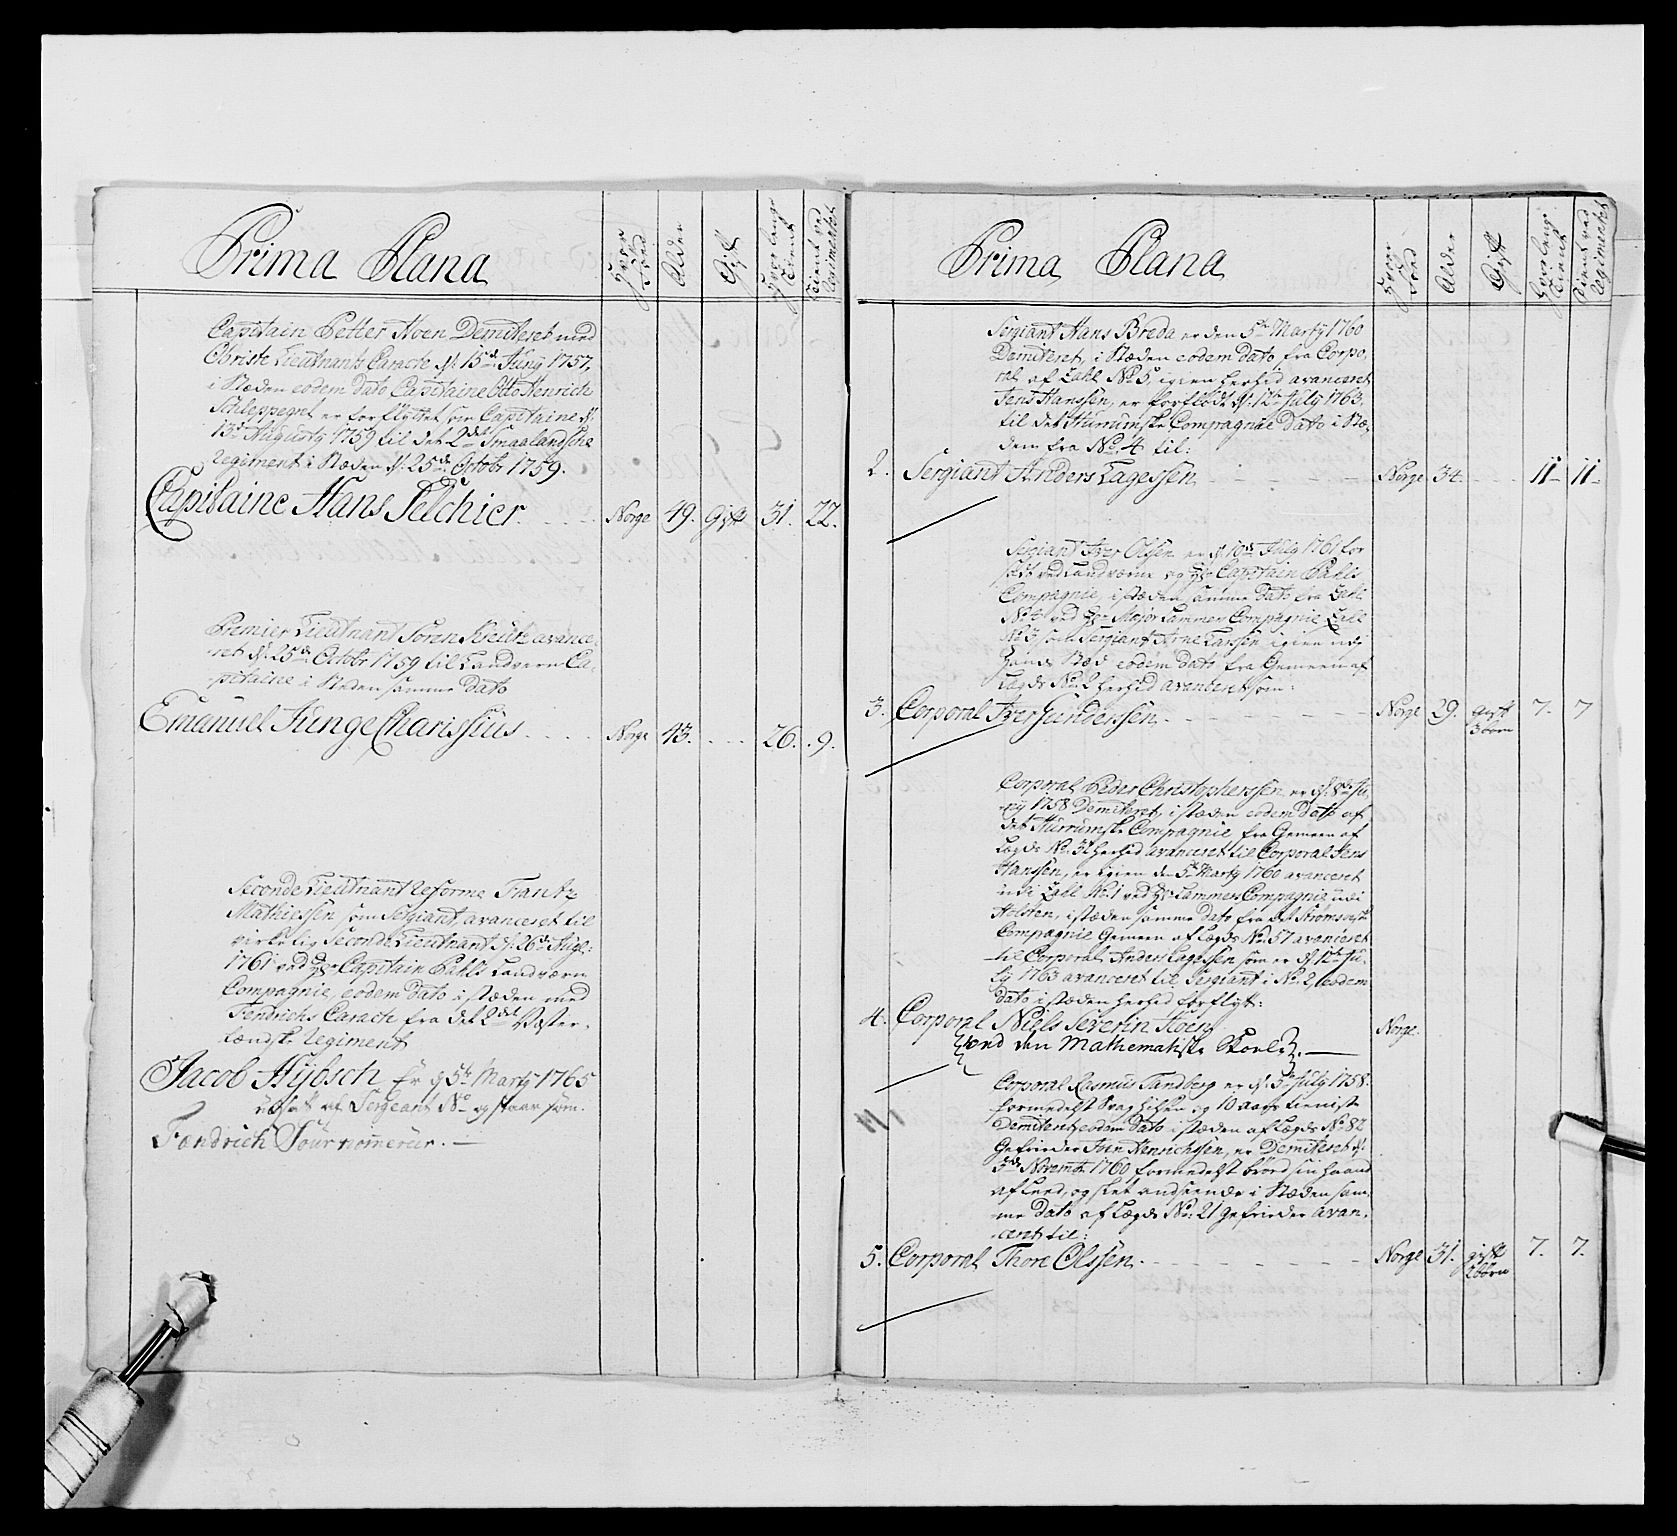 Prima Plana
Hvor Fød
Alder
Gift
Hvor lenge tient
Tient ved Regimentet
Capitain Petter Koen Demiteret med
Obriste Lieutnants Caracte d: 15de Junij 1757,
i Stæden eodem dato Capitaine Otto Henrich
Schleppegrel er forflyttet som Capitaine d:
13de Augusty 1759 til det 2det Smaalandsche
Regiment i Stæden d: 25de Octobr 1759.
Capitaine Hans Selchier. Norge 49. Gift 31. 22.
Premier Lieutnant Sören Kreutz avance-
ret d: 25de Octobr 1759 til Landvern Ca-
pitaine i Steden samme Dato
Emanuel Junge Charissius Norge 43. 26. 9.
Seconde Lieutnant Reforme Frantz
Mathiessen som Sergiant, avanceret til
virkelig Seconde Lieutnant d: 26de Aug:
1761 ved Hr Capitain Pahls Landværn
Compagnie, eodem dato i stæden med
Fendrichs Carach fra det 2det Væster-
lendske Regiment
Jacob Hybsch Er d 5te Marty 1765
udsatt af Sergeant No og staar som
Fændrich Sour nommerier.
Prima Plana
Hvor Fød
Alder
Gift
Hvor lenge tient
Tient ved Regimentet
Sergiant Hans Breda er den 5te Marty 1760
Demiteret, i Stæden eodem dato fra Corpo-
ral af Zahl No 5, igien herhid avanceret
Jens Hanssen, er forflödt d: 12te July 1763.
til det Hurrumske Compagnie Dato i Stæ-
den fra No. 4 til:
2. Sergiant Anders Lagessen Norge 34. 11 11
Sergiant Iver Olsen er d: 10de July 1761 for
sadt ved Landværne og Hr Capitain Pahls
Compagnie, i stæden samme Dato fra Zahl
No 4 ved Hr Major Lammers Compagnie Zahl
No 3 som Sergiant Arne Larsen igien udi
Hands Stæd eodem dato fra Gemeen af
Lægds No: 2 herhid avanceret som:
3. Corporal Iver Gunderssen Norge 29. gift 3 börn 7. 7
Corporal Peder Christopherssen er d: 8de Ju-
ny 1758 Demiteret, i stæden eodem Dato af
det Hurrumske Compagnie fra Gemeen af
Lægds No: 31 herhid avanceret til Corporal Jens
Hanssen, er igien den 5te Marty 1760 avanceret
udi Zahl No: 1 ved Hr Lammers Compagnie udi
Holsten, i stæden samme dato fra det Strömsöeske
Compagnie Gemeen af Lægds No: 57 avanceret
til Corporal Anders Lagessen som er d: 12te Ju-
ly 1763 avanceret til Sergiant i No: 2, eodem
dato i stæden herhid forflyt:
4. Corporal Niels Severin Koen Norge
ved den Mathematiske Skole.
Corporal Rasmus Tandberg er d: 5te July 1758.
formedelst Svaghiden og 10 aars tieniste
Demiteret eodem Dato i stæden af Lægds No: 82
Gefrieder Iver Henrichssen, er Demiteret d:
3de Novembr 1760 formedelst brörd sin haand
af Leed, og slet andseende i Stæden sam-
me Dato af Lægds No: 21 gefrieder avan-
ceret til:
5. Corporal Thore Olssen. Norge 31. gift 2 börn 7. 7.